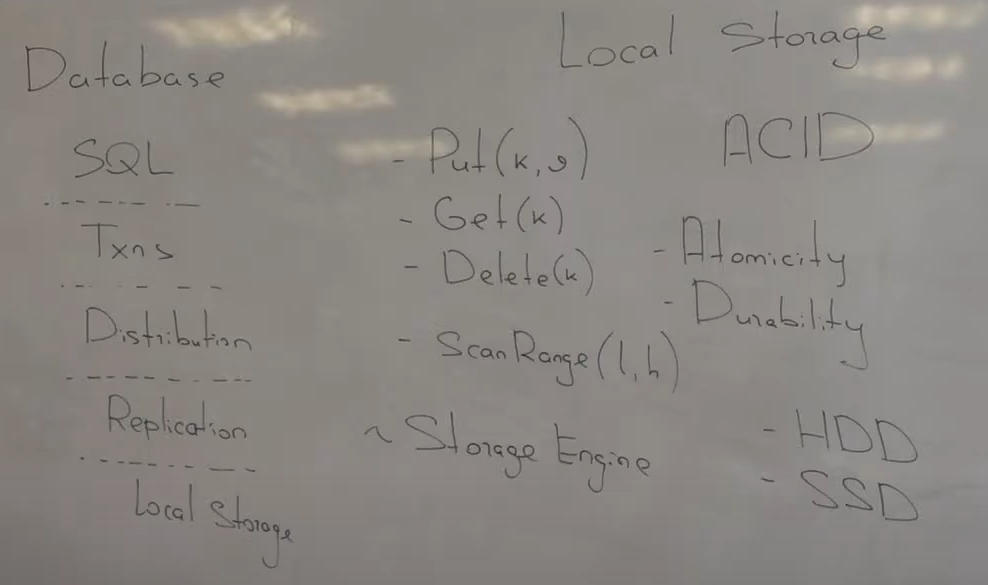 Database
SQL
Txns
Distribution
Replication
Local Storage
Local Storage
- Put(k,v)
- Get(k)
- Delete(k)
- ScanRange(l,h)
~ Storage Engine
ACID
- Atomicity
- Durability
- HDD
- SSD